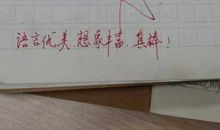 语言优美,想象丰富,真棒!